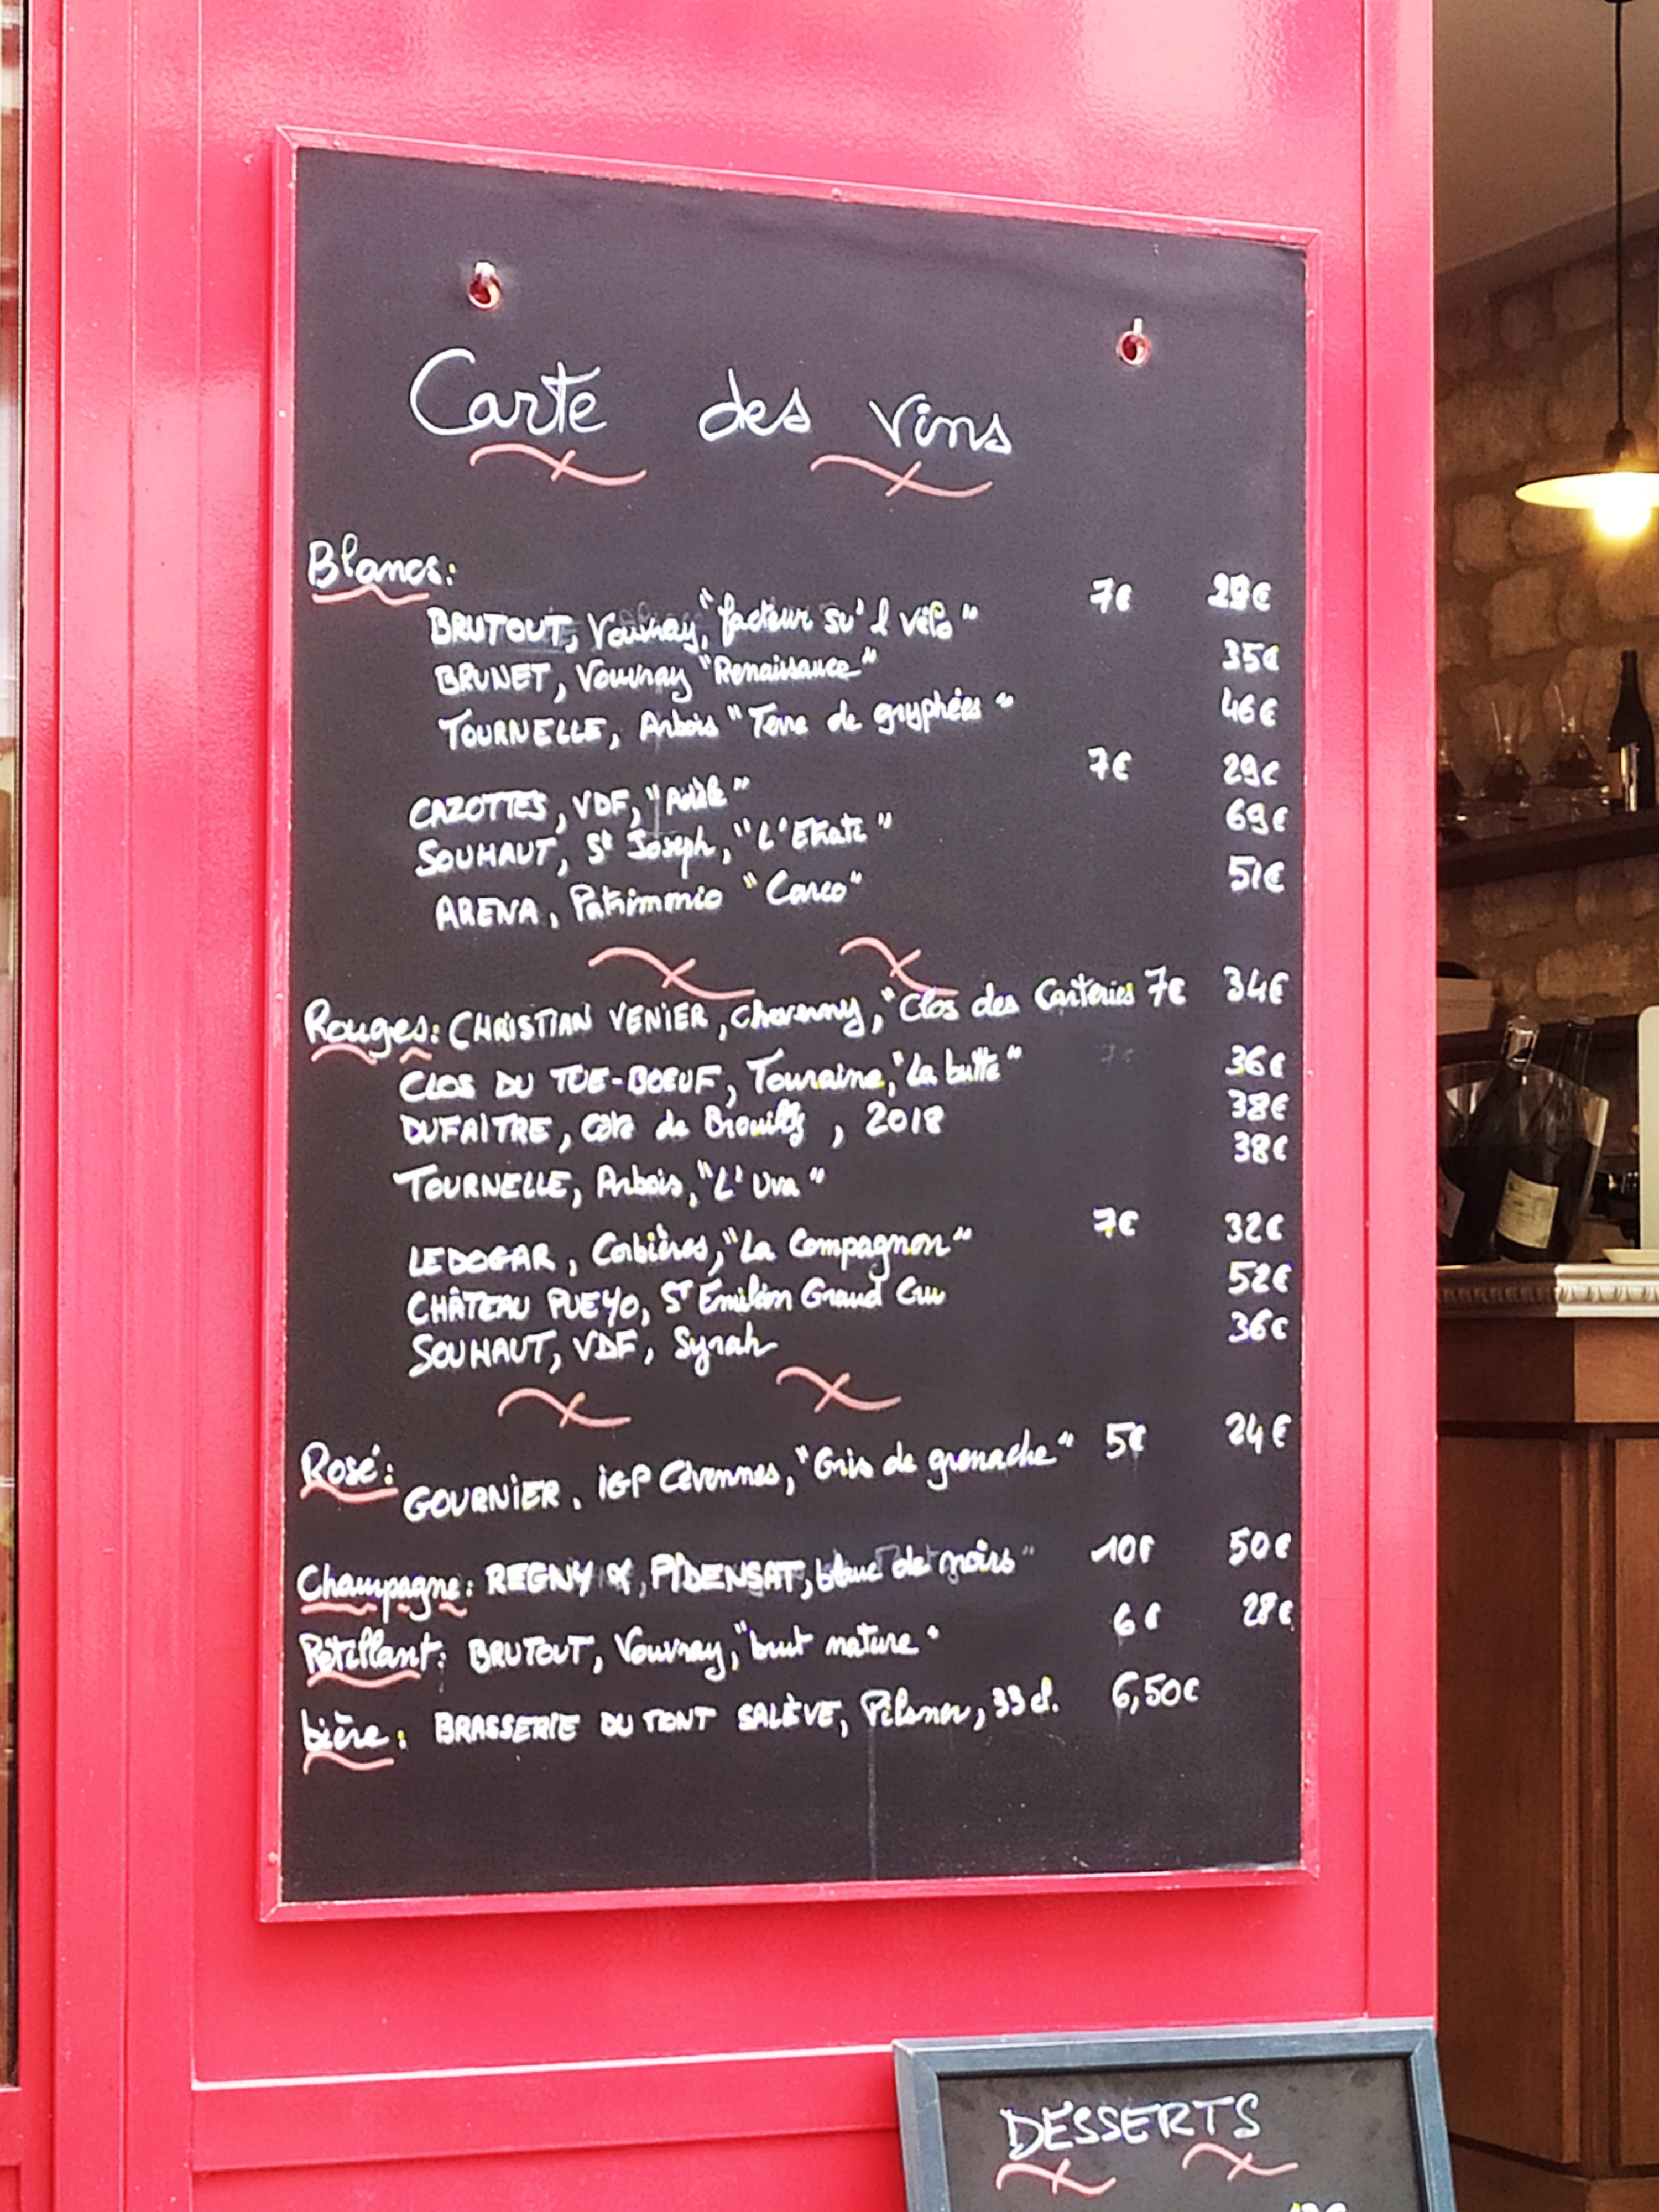 Carte des vins
Blancs:
BRUTOUT, Vouvray, "facteur su' l vélo" 7€ 29€
BRUNET, Vouvray "Renaissance" 35€
TOURNELLE, Arbois "Terre de gryphées" 46€
CAZOTTES, VDF, "Adèle" 7€ 29€
SOUHAUT, St Joseph, 69€
ARENA, Patrimonio "Carco" 51€
Rouges: CHRISTIAN VENIER, Cheverny, "Clos des Carteries 7€ 34€
CLOS DU TUE-BOEUF, Touraine, "La butte" 36€
DUFAITRE, Côte de Brouilly, 2018 38€
TOURNELLE, Arbois, "L'Uva" 38€
LEDOGAR, Corbières, "La Compagnon" 7€ 32€
CHÂTEAU PUEYO, ST Emilion Grand Cru 52€
SOUHAUT, VDF, Syrah 36€
Rosé: GOURNIER, IGP Cévennes, "Gris de grenache" 5€ 24€
Champagne: REGNY &, PIDENSAT, blanc de noirs" 10€ 50€
Pétillant: BRUTOUT, Vouvray, "brut nature" 6€ 28€
bière: BRASSERIE DU MONT SALÈVE, Pilsner, 33cl. 6,50€
DESSERTS